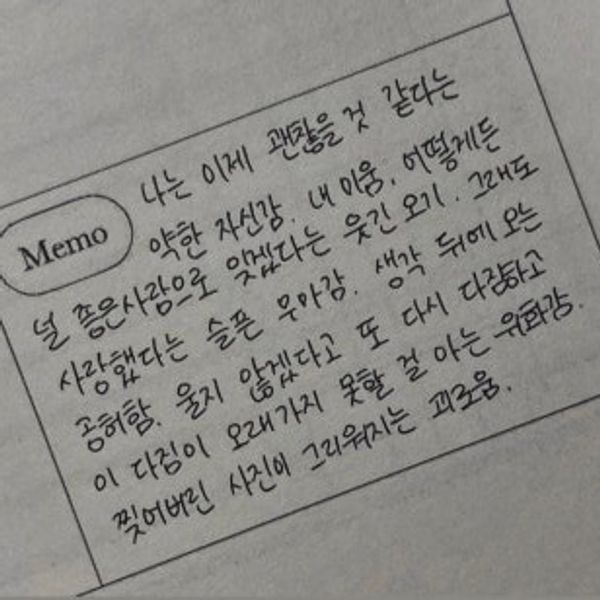 나는 이제 괜찮을것 같다는
Memo 약한 자신감. 내 미움. 어떻게든
널 좋은사람으로 잊겠다는 웃긴 오기. 그래도
사랑했다는 슬픈 우아감. 생각 뒤에 오는
공허함. 울지 않겠다고 또 다시 다짐하고
이 다짐이 오래가지 못할 걸 아는 위화감.
찢어버린 사진이 그리워지는 괴로움.